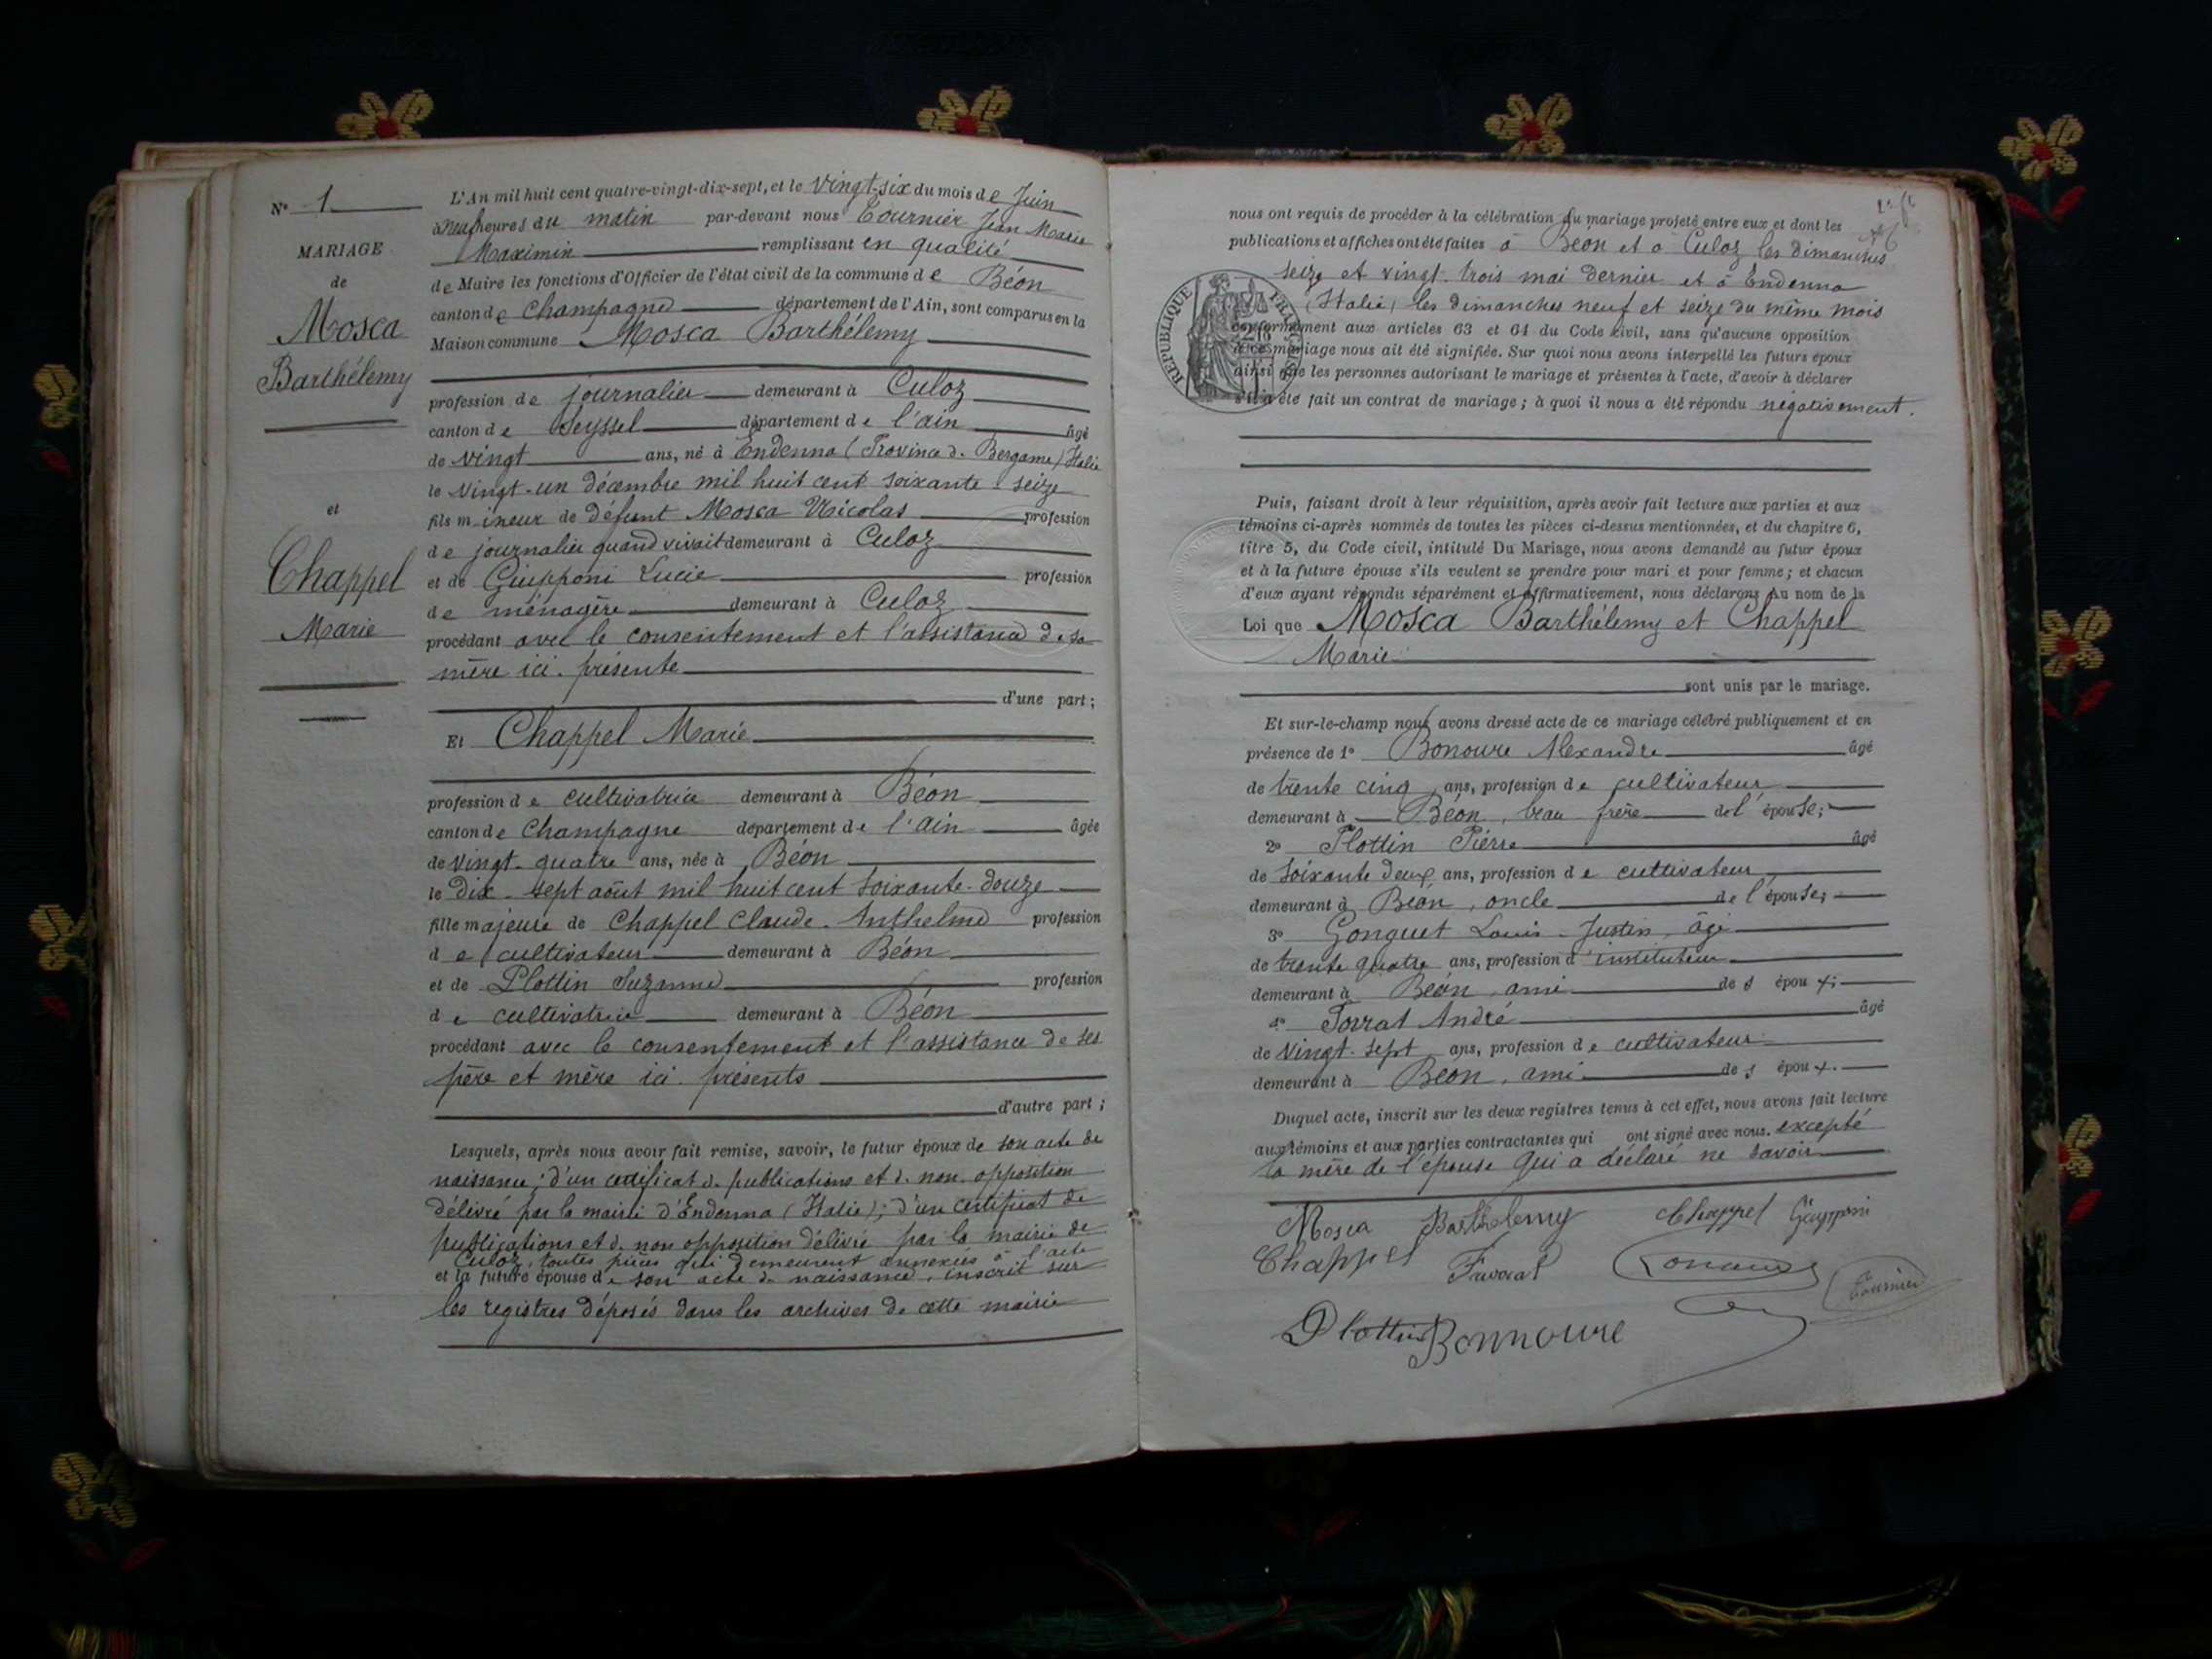 N° 1
MARIAGE
de
Mosca
Barthélemy
et
Chappel
Marie
L'An mil huit cent quatre-vingt-dix-sept, et le vingt-six du mois de Juin
à neuf heures du matin par-devant nous Tournier Jean Marie
Maximin remplissant en qualité
de Maire les fonctions d'Officier de l'état civil de la commune de Béon
canton de Champagne département de l'Ain, sont comparus en la
Maison commune Mosca Barthélemy
profession de journalier demeurant à Culoz
canton de Seyssel département de l'ain âgé
de vingt ans, né à Endenna (Province d. Bergame) Italie
le vingt-un décembre mil huit cent soixante-seize
fils mineur de défunt Mosca Nicolas profession
de journalier quand vivait demeurant à Culoz
et de Giupponi Lucie profession
de ménagère demeurant à Culoz
procédant avec le consentement et l'assistance de sa
mère ici présente
d'une part;
Et Chappel Marie
profession de cultivatrice demeurant à Béon
canton de Champagne département de l'ain âgée
de vingt-quatre ans, née à Béon
le dix-sept août mil huit cent soixante-douze
fille majeure de Chappel Claude-Anthelme profession
de cultivateur demeurant à Béon
et de Plottin Suzanne profession
de cultivatrice demeurant à Béon
procédant avec le consentement et l'assistance de ses
père et mère ici présents
d'autre part;
Lesquels, après nous avoir fait remise, savoir, le futur époux de son acte de
naissance; d'un certificat d. publications et d. non opposition
délivré par la mairie d'Endenna (Italie); d'un certificat de
publications et d. non opposition délivré par la mairie de
Culoz, toutes pièces qui demeurent annexées à l'acte
et la future épouse de son acte d. naissance, inscrit sur
les registres déposés dans les archives de cette mairie
nous ont requis de procéder à la célébration du mariage projeté entre eux et dont les
publications et affiches ont été faites à Béon et à Culoz les dimanches
seize et vingt-trois mai dernier et à Endenna
(Italie) les dimanches neuf et seize du même mois
RÉPUBLIQUE FRANÇAISE
conformément aux articles 63 et 64 du Code civil, sans qu'aucune opposition
à ce mariage nous ait été signifiée. Sur quoi nous avons interpellé les futurs époux
ainsi que les personnes autorisant le mariage et présentes à l'acte, d'avoir à déclarer
s'il a été fait un contrat de mariage; à quoi il nous a été répondu négativement.
Puis, faisant droit à leur réquisition, après avoir fait lecture aux parties et aux
témoins ci-après nommés de toutes les pièces ci-dessus mentionnées, et du chapitre 6,
titre 5, du Code civil, intitulé Du Mariage, nous avons demandé au futur époux
et à la future épouse s'ils veulent se prendre pour mari et pour femme; et chacun
d'eux ayant répondu séparément et affirmativement, nous déclarons au nom de la
Loi que Mosca Barthélemy et Chappel
Marie
sont unis par le mariage.
Et sur-le-champ nous avons dressé acte de ce mariage célébré publiquement et en
présence de 1° Bonoure Alexandre âgé
de trente cinq ans, profession de cultivateur
demeurant à Béon, beau frère de l'épouse;
2° Plottin Pierre âgé
de soixante deux ans, profession de cultivateur
demeurant à Béon, oncle de l'épouse;
3° Gonguet Louis-Justin, âgé
de trente quatre ans, profession d'instituteur
demeurant à Béon, ami des époux;
4° Forrat André âgé
de vingt-sept ans, profession de cultivateur
demeurant à Béon, ami des époux.
Duquel acte, inscrit sur les deux registres tenus à cet effet, nous avons fait lecture
aux témoins et aux parties contractantes qui ont signé avec nous. excepté
la mère de l'épouse qui a déclaré ne savoir
Mosca Barthelemy Chappel
Chappel
Tournier
Plottin Bonnoure